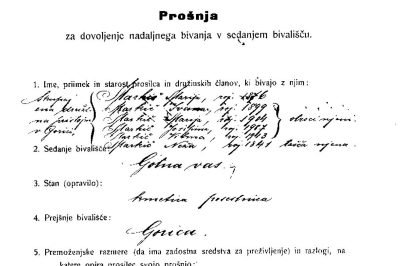 Prošnja
za dovoljenje nadaljnega bivanja v sedanjem bivališču.
1. Ime, priimek in starost prosilca in družinskih članov, ki bivajo z njim:
Markič Marija, roj. 1876
Markič Ivana, roj. 1899
Markič Marija, roj. 1904
Markič Josipina, roj. 1907
otroci njeni
v Gorici
Markič roj. 1903
2. Sedanje bivališče: Markič Neža, roj. 1841 tašča njena
Golna vas
3. Stan (opravilo):
kmetica posestnica
4. Prejšnje bivališče:
Gorica
5. Premoženjske razmere (da ima zadostna sredstva za preživljenje) in razlogi, na
katere opira prosilec svojo prošnjo: